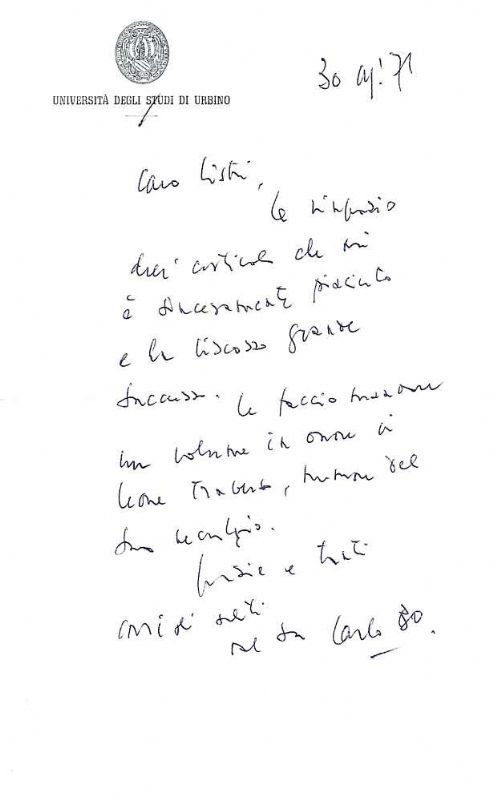 UNIVERSITÀ DEGLI STUDI DI URBINO
30 ap! 71
Caro Listri,
La ringrazio
dell'articolo che mi
è sinceramente piaciuto
e ha riscosso grande
successo. Le faccio mandare
un volume in onore di
Leone Traverso,
suo
Grazie e tanti
cordiali saluti
dal suo Carlo Bo.